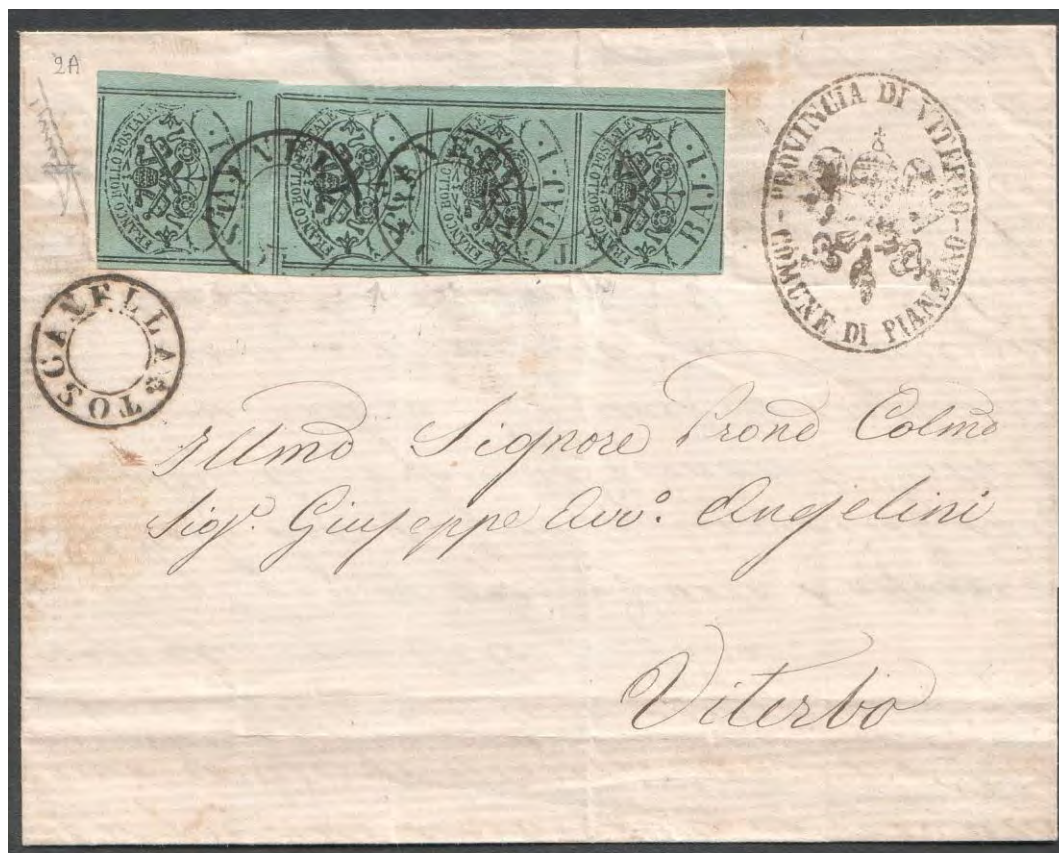 2A
FRANCO BOLLO POSTALE 1 BAJ
FRANCO BOLLO POSTALE
FRANCO BOLLO POSTALE 1 BAJ
FRANCO BOLLO POSTALE 1 BAJ
PROVINCIA DI VITERBO
COMUNE DI PIANSANO
TOSCANELLA
Illmo Signore Prone Colmo
Sigr. Giuseppe Avvo. Angelini
Viterbo